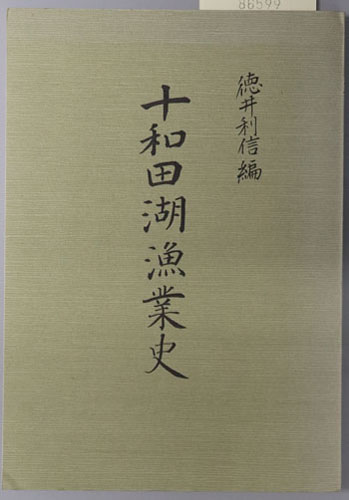 86599
徳井利信編
十和田湖漁業史